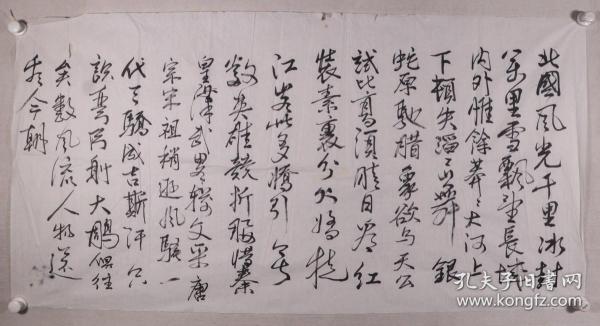 北國風光千里冰封
萬里雪飄望長城
内外惟餘莽〻大河上
下頓失滔〻山舞銀
蛇原馳腊象欲与天公
試比高須晴日看红
裝素裹分外嬌
江山如此多嬌引無
數英雄競折腰惜秦
皇漢武畧輸文采唐
宗宋祖稍遜風騷一
代天驕成吉斯汗只
識弯弓射大鵰俱往
矣數風流人物還
看今朝
孔夫子旧書网
www.kongfz.com